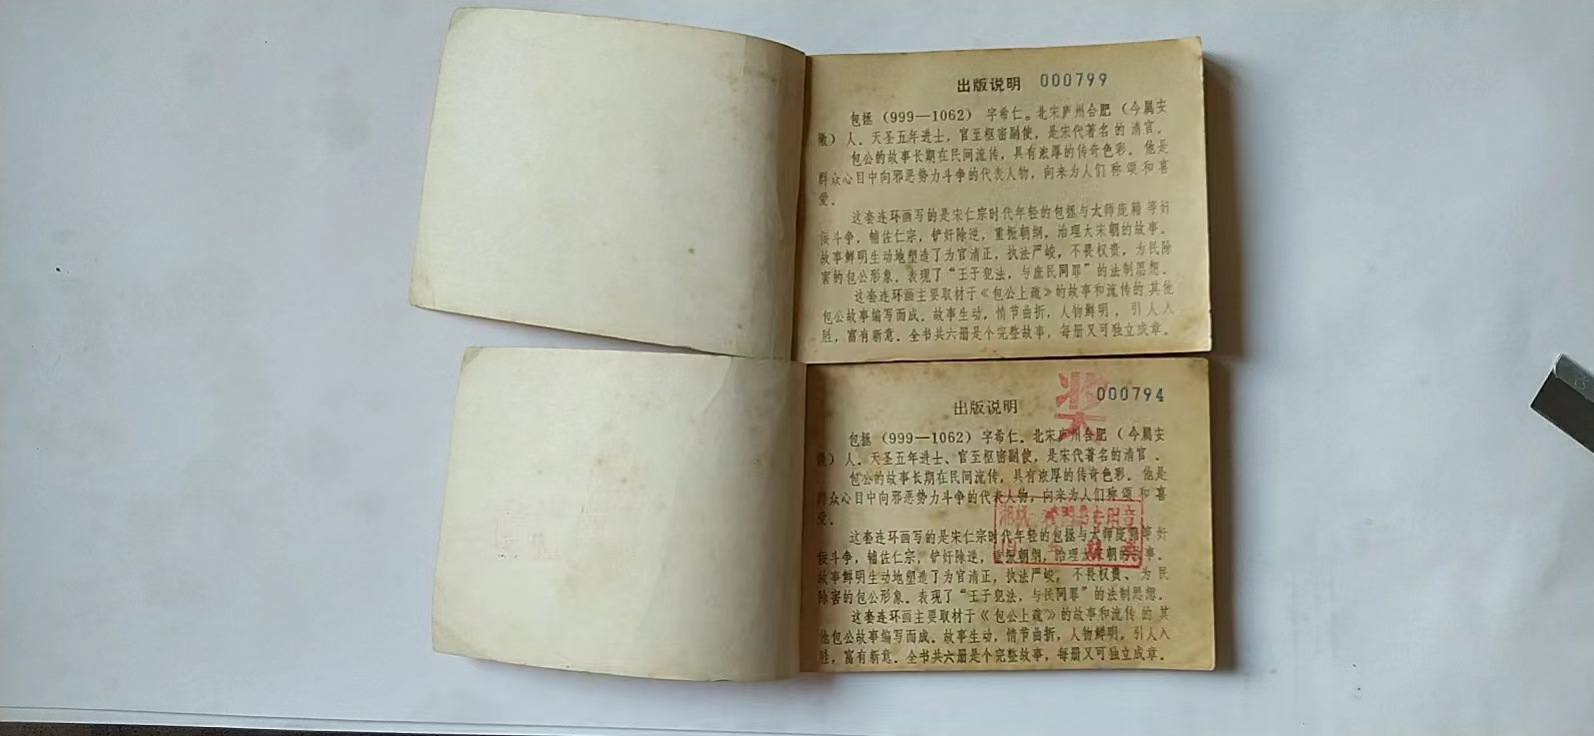 出版说明 000799
包拯（999—1062） 字希仁。北宋庐州合肥（今属安
徽）人。天圣五年进士，官至枢密副使，是宋代著名的清官。
包公的故事长期在民间流传，具有浓厚的传奇色彩。他是
群众心目中向邪恶势力斗争的代表人物，向来为人们称颂和喜
爱。
这套连环画写的是宋仁宗时代年轻的包拯与太师庞籍等奸
佞斗争，辅佐仁宗，铲奸除逆，重振朝纲，治理大宋朝的故事。
故事鲜明生动地塑造了为官清正，执法严峻，不畏权贵，为民除
害的包公形象。表现了“王子犯法，与庶民同罪”的法制思想。
这套连环画主要取材于《包公上疏》的故事和流传的其他
包公故事编写而成。故事生动，情节曲折，人物鲜明，引人入
胜，富有新意。全书共六册是个完整故事，每册又可独立成章。
奖
000794
出版说明
包拯（999—1062）字希仁。北宋庐州合肥（今属安
徽）人。天圣五年进士、官至枢密副使，是宋代著名的清官。
包公的故事长期在民间流传，具有浓厚的传奇色彩。他是
群众心目中向邪恶势力斗争的代表人物，向来为人们称颂和喜
爱。
这套连环画写的是宋仁宗时代年轻的包拯与太师庞籍等奸
佞斗争，辅佐仁宗，铲奸除逆，重振朝纲，治理大宋朝的故事。
故事鲜明生动地塑造了为官清正，执法严峻，不畏权贵、为民
除害的包公形象。表现了“王子犯法，与民同罪”的法制思想。
这套连环画主要取材于《包公上疏》的故事和流传的其
他包公故事编写而成。故事生动，情节曲折，人物鲜明，引人入
胜，富有新意。全书共六册是个完整故事，每册又可独立成章。
专用章